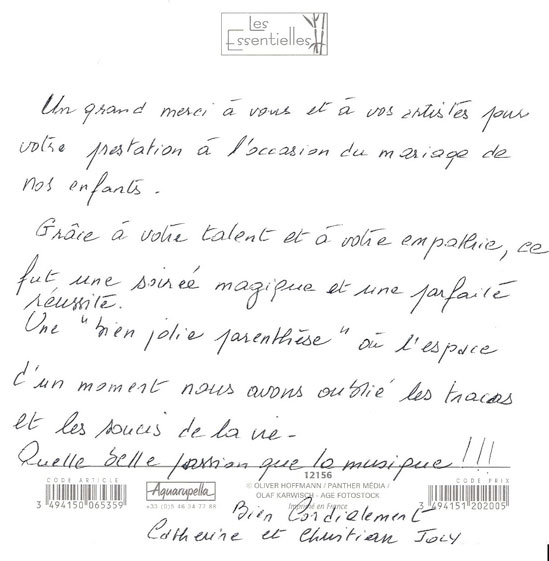 Les
Essentielles
Un grand merci à vous et à vos artistes pour
votre prestation à l'occasion du mariage de
nos enfants.
Grâce à votre talent et à votre empathie, ce
fut une soirée magique et une parfaite
réussite.
Une "bien jolie parenthèse" où l'espace
d'un moment nous avons oublié les tracas
et les soucis de la vie -
Quelle belle passion que la musique !!!
CODE ARTICLE
3 494150 065359
Aquarupella
+33 (0)5 46 34 77 88
12156
© OLIVER HOFFMANN / PANTHER MÉDIA /
OLAF KARWISCH - AGE FOTOSTOCK
Imprimé en France
CODE PRIX
3 494151 202005
Bien Cordialement
Catherine et Christian Joly